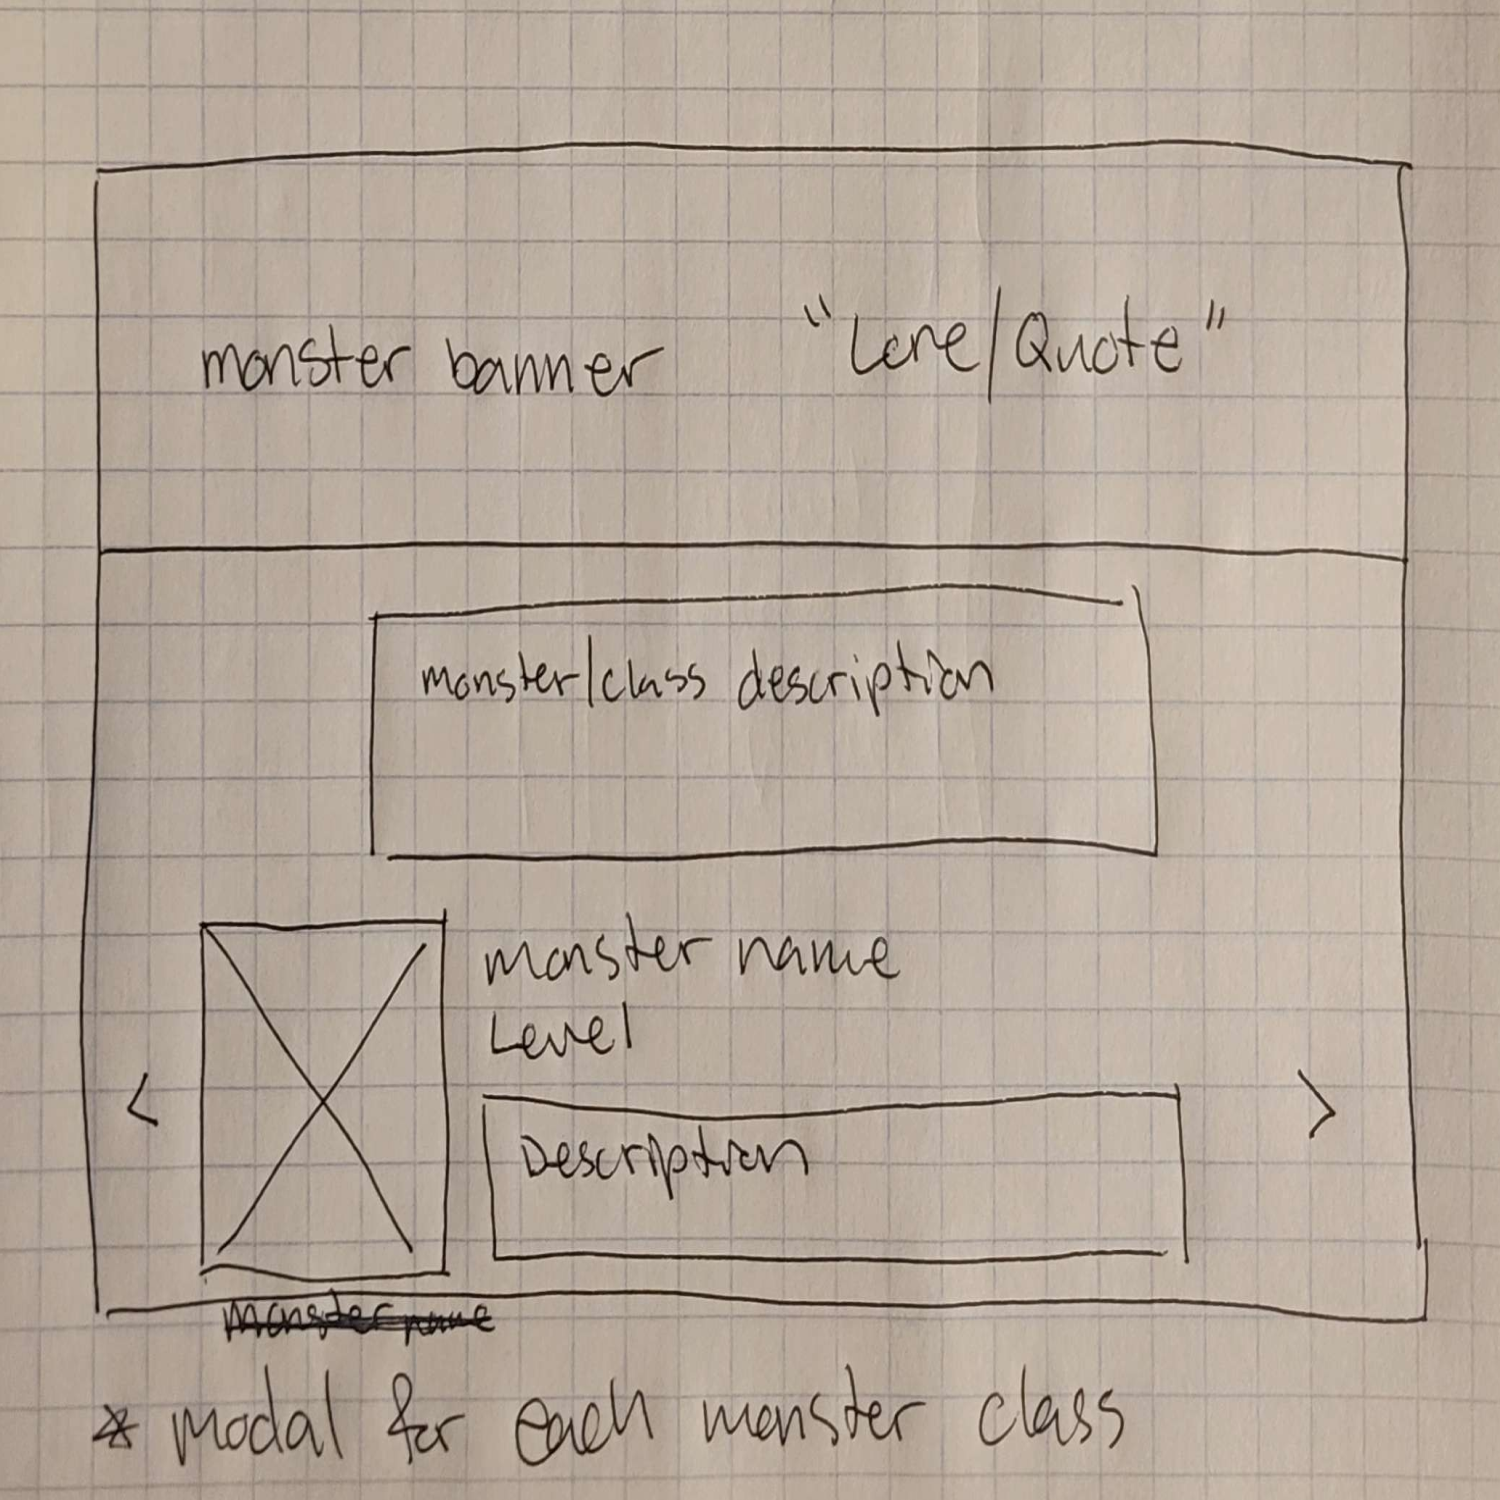 monster banner "Lore/Quote"
monster/class description
monster name
Level
< >
Description
monster name
* modal for each monster class